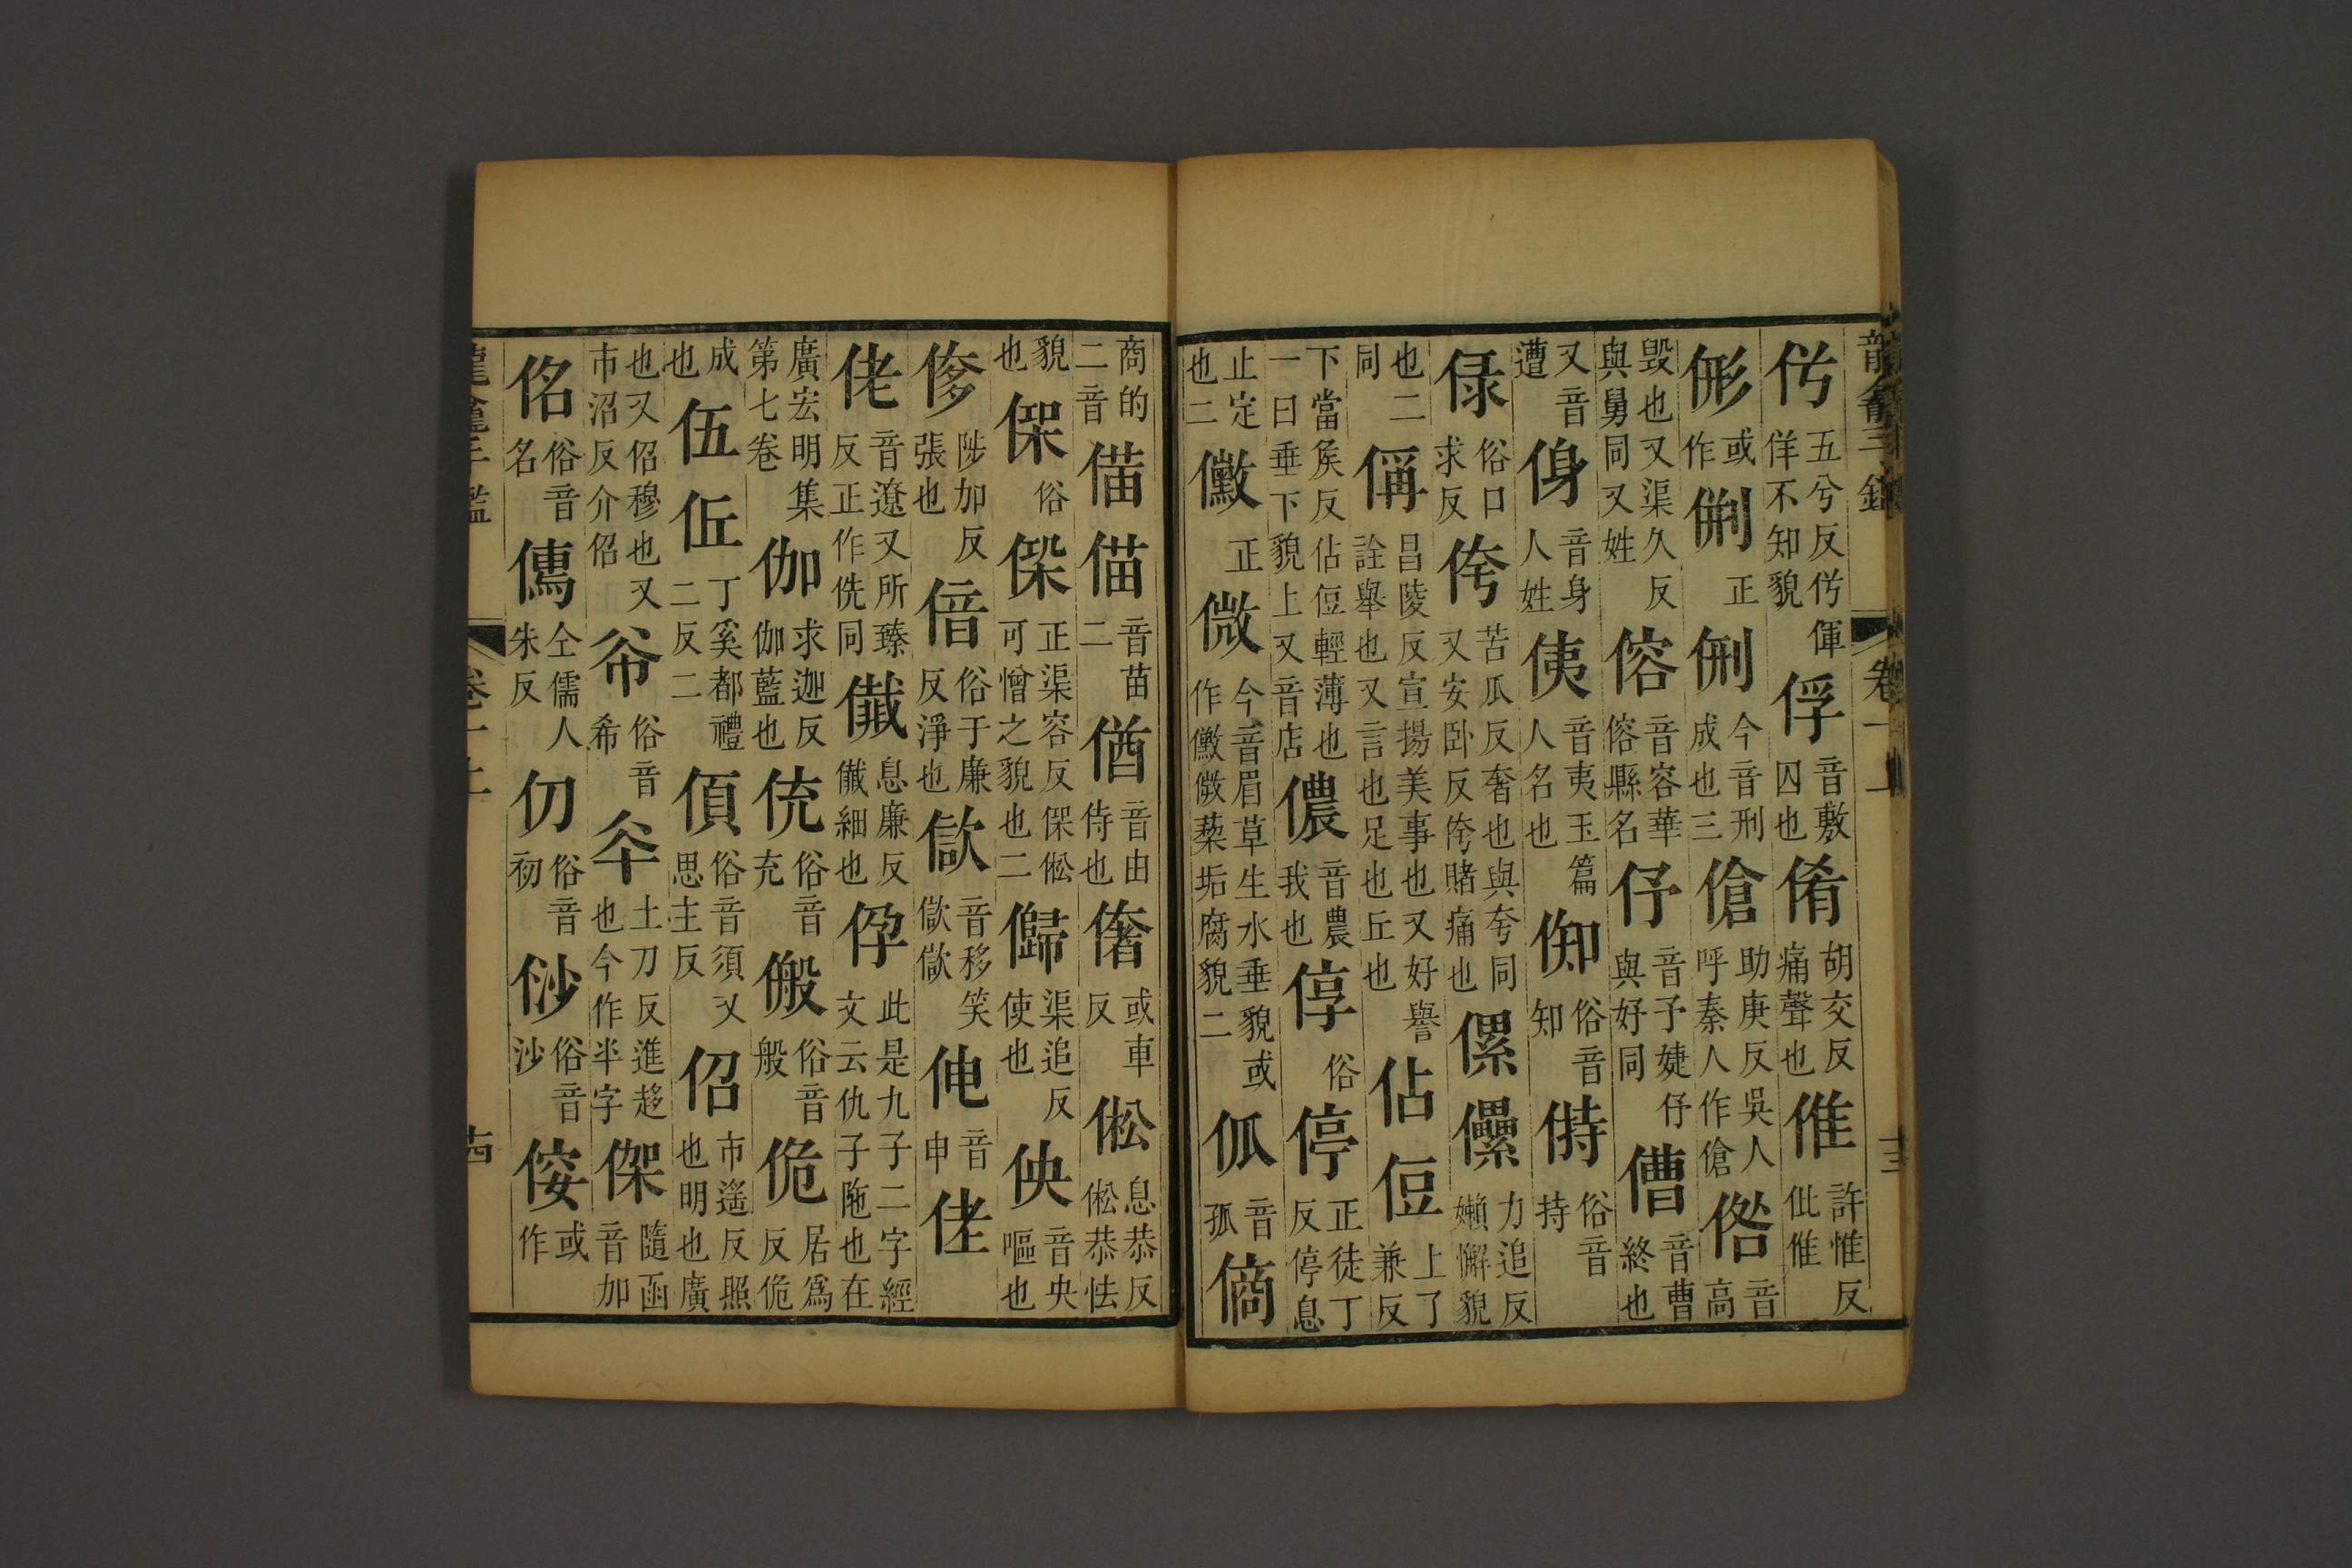 佝五兮反佝僤佯不知貌俘音敷囚也倄胡交反痛聲也倠許惟反仳倠
侀或作侀正侀今音刑成也三傖助庚反吳人呼秦人作傖俢音高
毀也又渠久反與舅同又姓傛音容華傛縣名伃音予婕伃與好同傮音曹終也
又音遭㑗音身人姓侇音夷玉篇人名也㑭俗音知偫俗音持
俅俗口求反侉苦瓜反奢也與夸同又安卧反侉賭痛也傫儽力追反嬾懈貌
也二同偁昌陵反宣揚美事也又好譽詮舉也又言也足也丘也佔侸上丁兼反
下當矦反佔侸輕薄也一曰垂下貌上又音店儂音農我也㝊俗停正徒丁反停息
止定也二黴正微今音眉草生水垂貌或作黴黴蔾垢腐貌二㼌音孤㒀
商的二音㑤㑤音苗二偤音由侍也偖或車反倯息恭反倯恭怯
貌也㑾俗㑾正渠容反㑾倯可憎之貌也二㱕渠追反使也佒音央嘔也
侈陟加反張也偣俗于廉反淨也歋音移笑歋歋㑗音申佬
佬音遼又所臻反正作侁同㒨息廉反㒨細也㑔此是九子二字經文云仇子陁也在
廣宏明集第七卷伽求迦反伽藍也㑬俗音充㑯俗音般佹居爲反佹
成也伍㐰丁奚都禮二反二偩俗音須又思主反佋市遙反照也明也廣
也又佋穆也又市沼反介佋㑶俗音希夲土刀反進趍也今作半字㑢隨函音加
佲俗音名儰仝儒人朱反仞俗音初㑉俗音沙㑮或作
龍龕手鑑 卷一上 十四